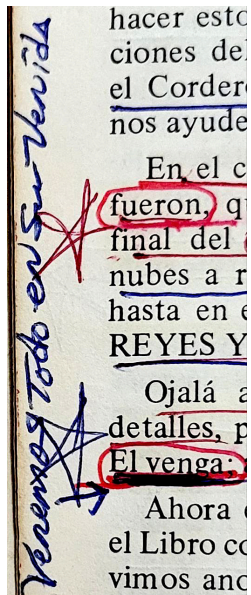 hacer esto
ciones del
el Cordero
nos ayude
En el c
fueron, qu
final del
nubes a r
hasta en e
REYES Y
Ojalá a
detalles, p
El venga;
Ahora
el Libro co
vimos ano
Veremos Todo en Su Venida